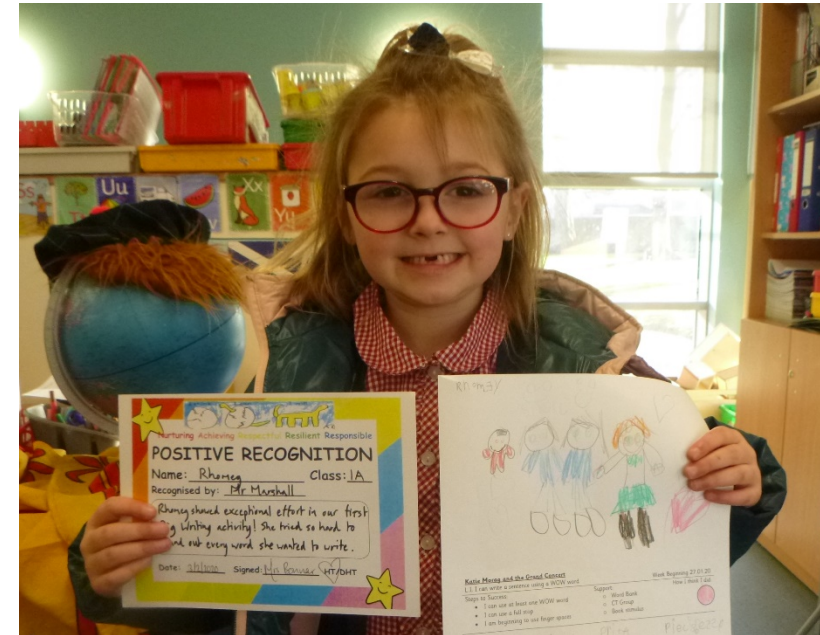 Ss
Uu
Xx
Yy
Nurturing Achieving Respectful Resilient Responsible
POSITIVE RECOGNITION
Name: Rhomey Class: 1A
Recognised by: Mr Marshall
Rhomey showed exceptional effort in our first
Big Writing activity! She tried so hard to
out every word she wanted to write.
Date: Signed: HT/DHT
Rhomey
Katie Morag and the Grand Concert
Week Beginning 27.01.20
L.I. I can write a sentence using a WOW word
How I think I did
Steps to Success:
Support:
• I can use at least one WOW word
o Word Bank
• I can use a full stop
o CT Group
• I am beginning to use finger spaces
o Book stimulus